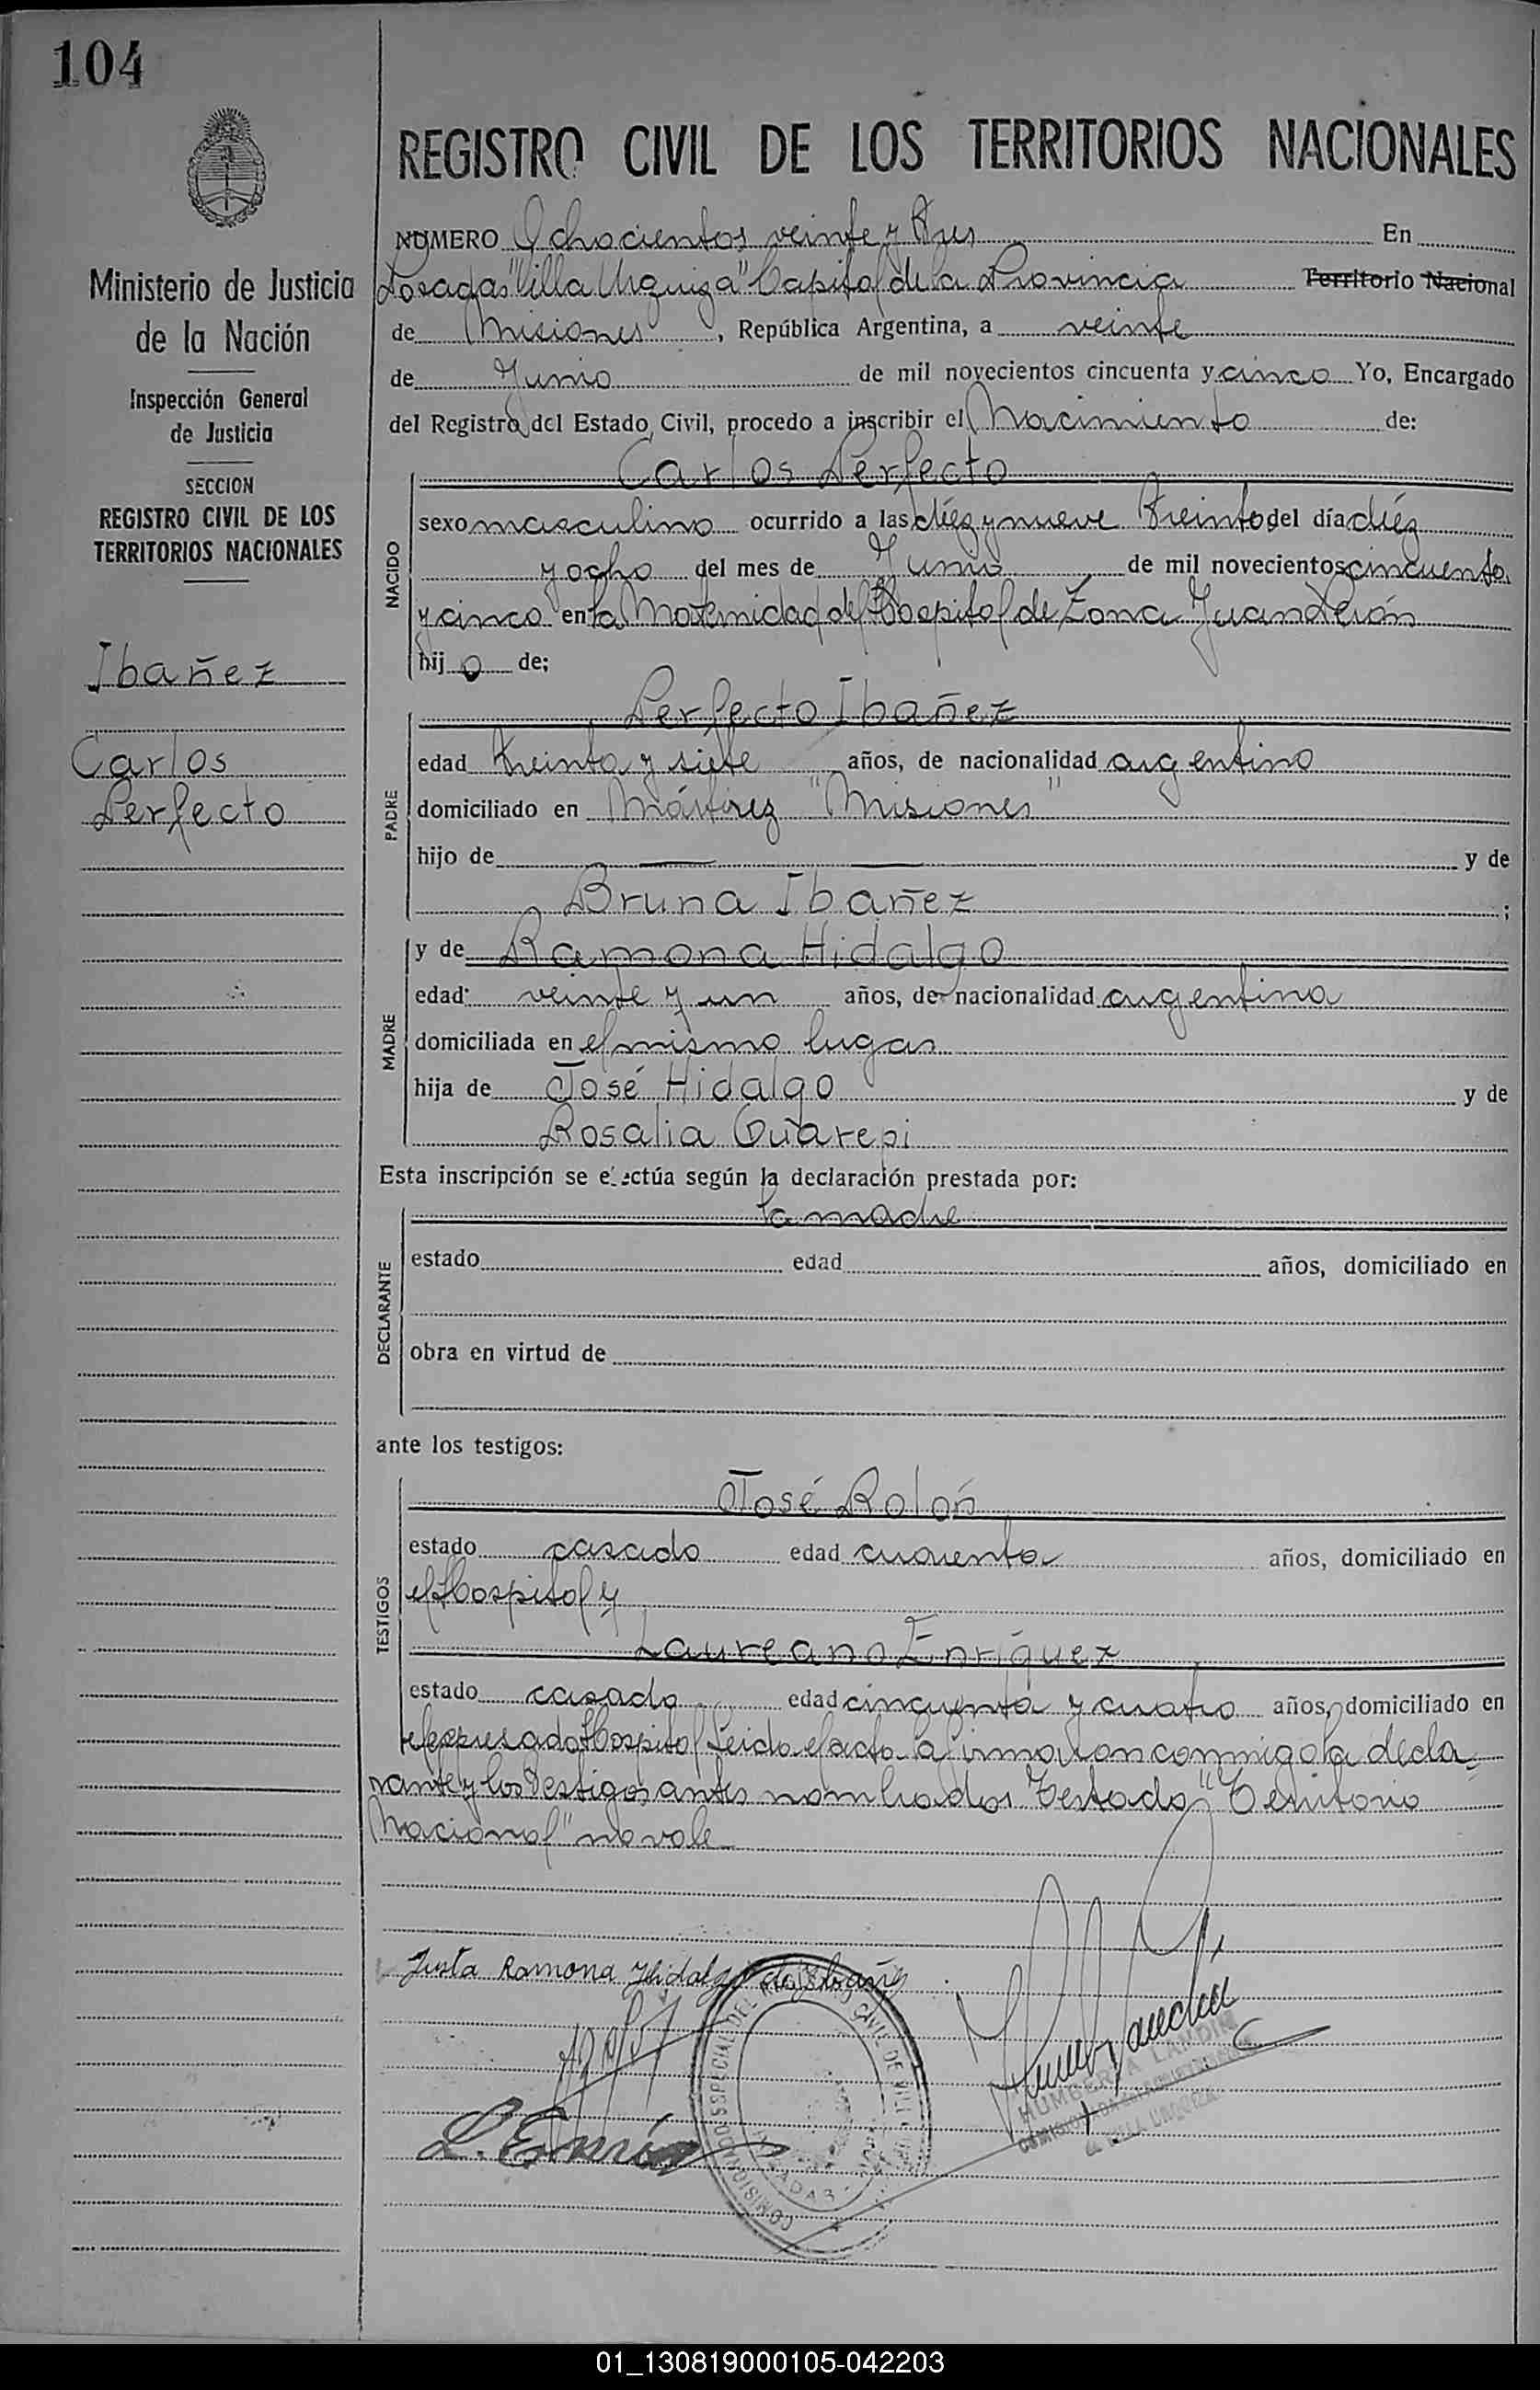 104
Ministerio de Justicia
de la Nación
Inspección General
de Justicia
SECCION
REGISTRO CIVIL DE LOS
TERRITORIOS NACIONALES
Ibañez
Carlos
Perfecto
REGISTRO CIVIL DE LOS TERRITORIOS NACIONALES
NUMERO Ochocientos veinte y tres En
Posadas "Villa Urquiza" Capital de la Provincia Territorio Nacional
de Misiones, República Argentina, a veinte
de Junio de mil novecientos cincuenta y cinco Yo, Encargado
del Registro del Estado Civil, procedo a inscribir el Nacimiento de:
Carlos Perfecto
NACIDO
sexo masculino ocurrido a las diéz y nueve treinta del día diéz
y ocho del mes de Junio de mil novecientos cincuenta
y cinco en la Maternidad del Hospital de Zona Juan Perón
hijo de;
Perfecto Ibañez
PADRE
edad treinta y siete años, de nacionalidad argentino
domiciliado en Mártirez "Misiones"
hijo de — — y de
Bruna Ibañez ;
y de Ramona Hidalgo
MADRE
edad veinte y un años, de nacionalidad argentina
domiciliada en el mismo lugar
hija de José Hidalgo y de
Rosalia Guarepi
Esta inscripción se efectúa según la declaración prestada por:
la madre
DECLARANTE
estado edad años, domiciliado en
obra en virtud de
ante los testigos:
José Rolón
TESTIGOS
estado casado edad cuarenta años, domiciliado en
el Hospital y
Laureano Enríquez
estado casado edad cincuenta y cuatro años, domiciliado en
el expresado Hospital Leida el acta la firmaron conmigo la decla-
rante y los testigos antes nombrados Testado "Territorio
Nacional" no vale
Justa Ramona Hidalgo de Ibañez
L. Enríq
COMISIONADO ESPECIAL DEL REGISTRO CIVIL DE VILLA
POSADAS
HUMBERTO LANDI
01_130819000105-042203